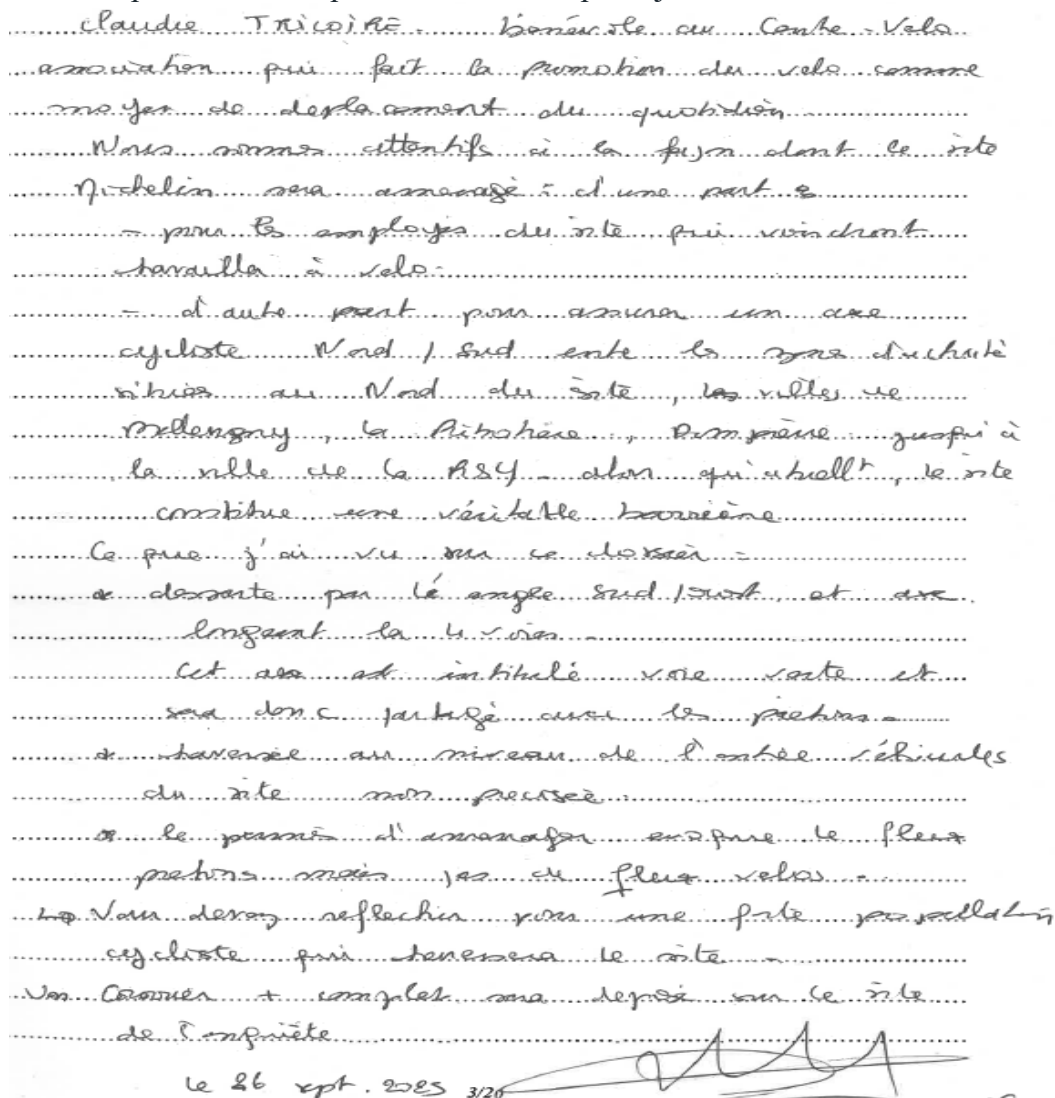 Claudie TRICOIRE - bénévole au Centre-Velo
association qui fait la promotion du velo comme
moyen de deplacement du quotidien
Nous sommes attentifs à la façon dont le site
Michelin sera amenagé : d'une part :
- pour les employés du site qui viendront
travailler à velo -
- d'autre part pour assurer un axe
cycliste Nord / Sud entre les zones d'activité
situées au Nord du site, les villes de
Mellengny, la Ribotière, Dompierre jusqu'à
la ville de la RSY - alors qu'actuellt, le site
constitue une véritable barrière
Ce que j'ai vu sur ce dossier =
* desserte par l'angle Sud / ouest, et axe
longeant la 4 voies -
Cet axe est intitulé voie verte et
sera donc partagé avec les piétons -
* traversée au niveau de l'entrée véhicules
du site non precisée
* le permis d'amenager expose le flux
pietons mais pas de flux velos -
Vous devez reflechir pour une forte population
cycliste qui traversera le site -
Un Courrier + complet sera deposé sur le site
de l'enquête
le 26 sept. 2025 3/26